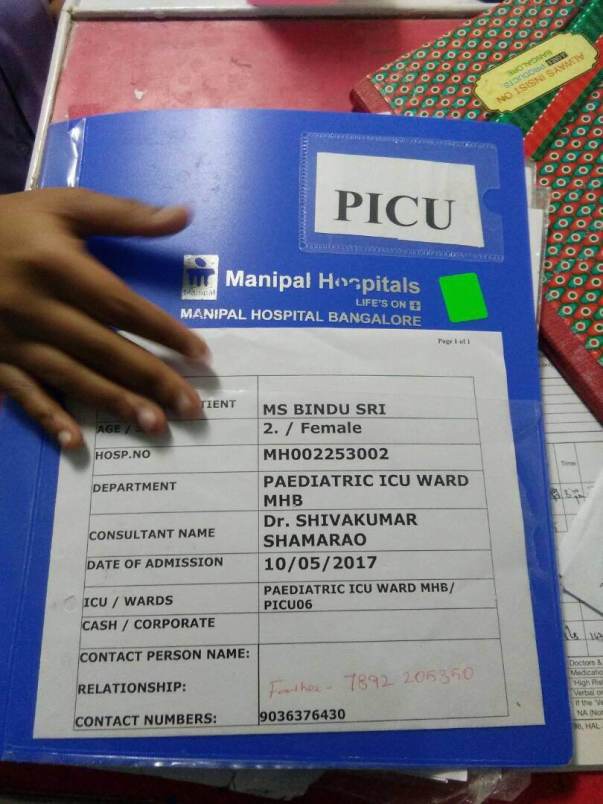 ALWAYS INSIST ON
PRODUCTS
BANGALORE
PICU
Manipal Hospitals
LIFE'S ON
MANIPAL HOSPITAL BANGALORE
Page 1 of 1
TIENT MS BINDU SRI
AGE / 2. / Female
HOSP.NO MH002253002
DEPARTMENT PAEDIATRIC ICU WARD
MHB
CONSULTANT NAME Dr. SHIVAKUMAR
SHAMARAO
DATE OF ADMISSION 10/05/2017
ICU / WARDS PAEDIATRIC ICU WARD MHB/
PICU06
CASH / CORPORATE
CONTACT PERSON NAME:
RELATIONSHIP: Father - 7892 205350
CONTACT NUMBERS: 9036376430
Time
Doctors &
Medicatio
High Ris
Verbal or
If the 'Ve
NA (Not
HAL